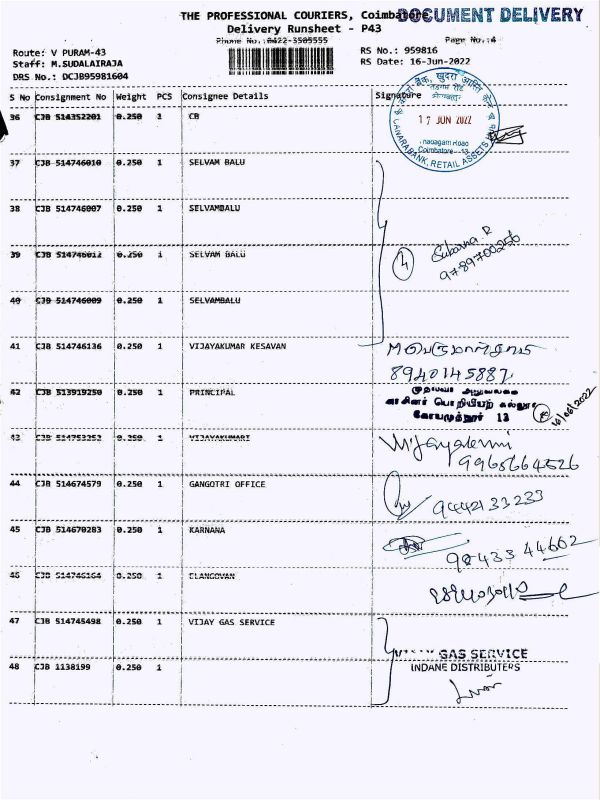 THE PROFESSIONAL COURIERS, Coimbatore
DOCUMENT DELIVERY
Delivery Runsheet - P43
Phone No.:0422-3505555
Page No.:4
Route: V PURAM-43
RS No.: 959816
Staff: M.SUDALAIRAJA
RS Date: 16-Jun-2022
DRS No.: DCJB95981604
S No Consignment No Weight PCS Consignee Details Signature
36 CJB 514352201 0.250 1 CB
17 JUN 2022
Coimbatore - 13
CANARA BANK, RETAIL ASSETS HUB
37 CJB 514746010 0.250 1 SELVAM BALU
38 CJB 514746007 0.250 1 SELVAMBALU
39 CJB 514746012 0.250 1 SELVAM BALU
4 Subarna R
9789700256
40 CJB 514746009 0.250 1 SELVAMBALU
41 CJB 514746136 0.250 1 VIJAYAKUMAR KESAVAN
8940145887
42 CJB 513919250 0.250 1 PRINCIPAL
கோயமுத்தூர் 13
16/06/2022
43 CJB 514753252 0.250 1 VIJAYAKUMARI
9965664526
44 CJB 514674579 0.250 1 GANGOTRI OFFICE
9442133233
45 CJB 514670283 0.250 1 KARNANA
90433 44662
46 CJB 514746164 0.250 1 ELANGOVAN
47 CJB 514745498 0.250 1 VIJAY GAS SERVICE
VIJAY GAS SERVICE
48 CJB 1138199 0.250 1
INDANE DISTRIBUTERS